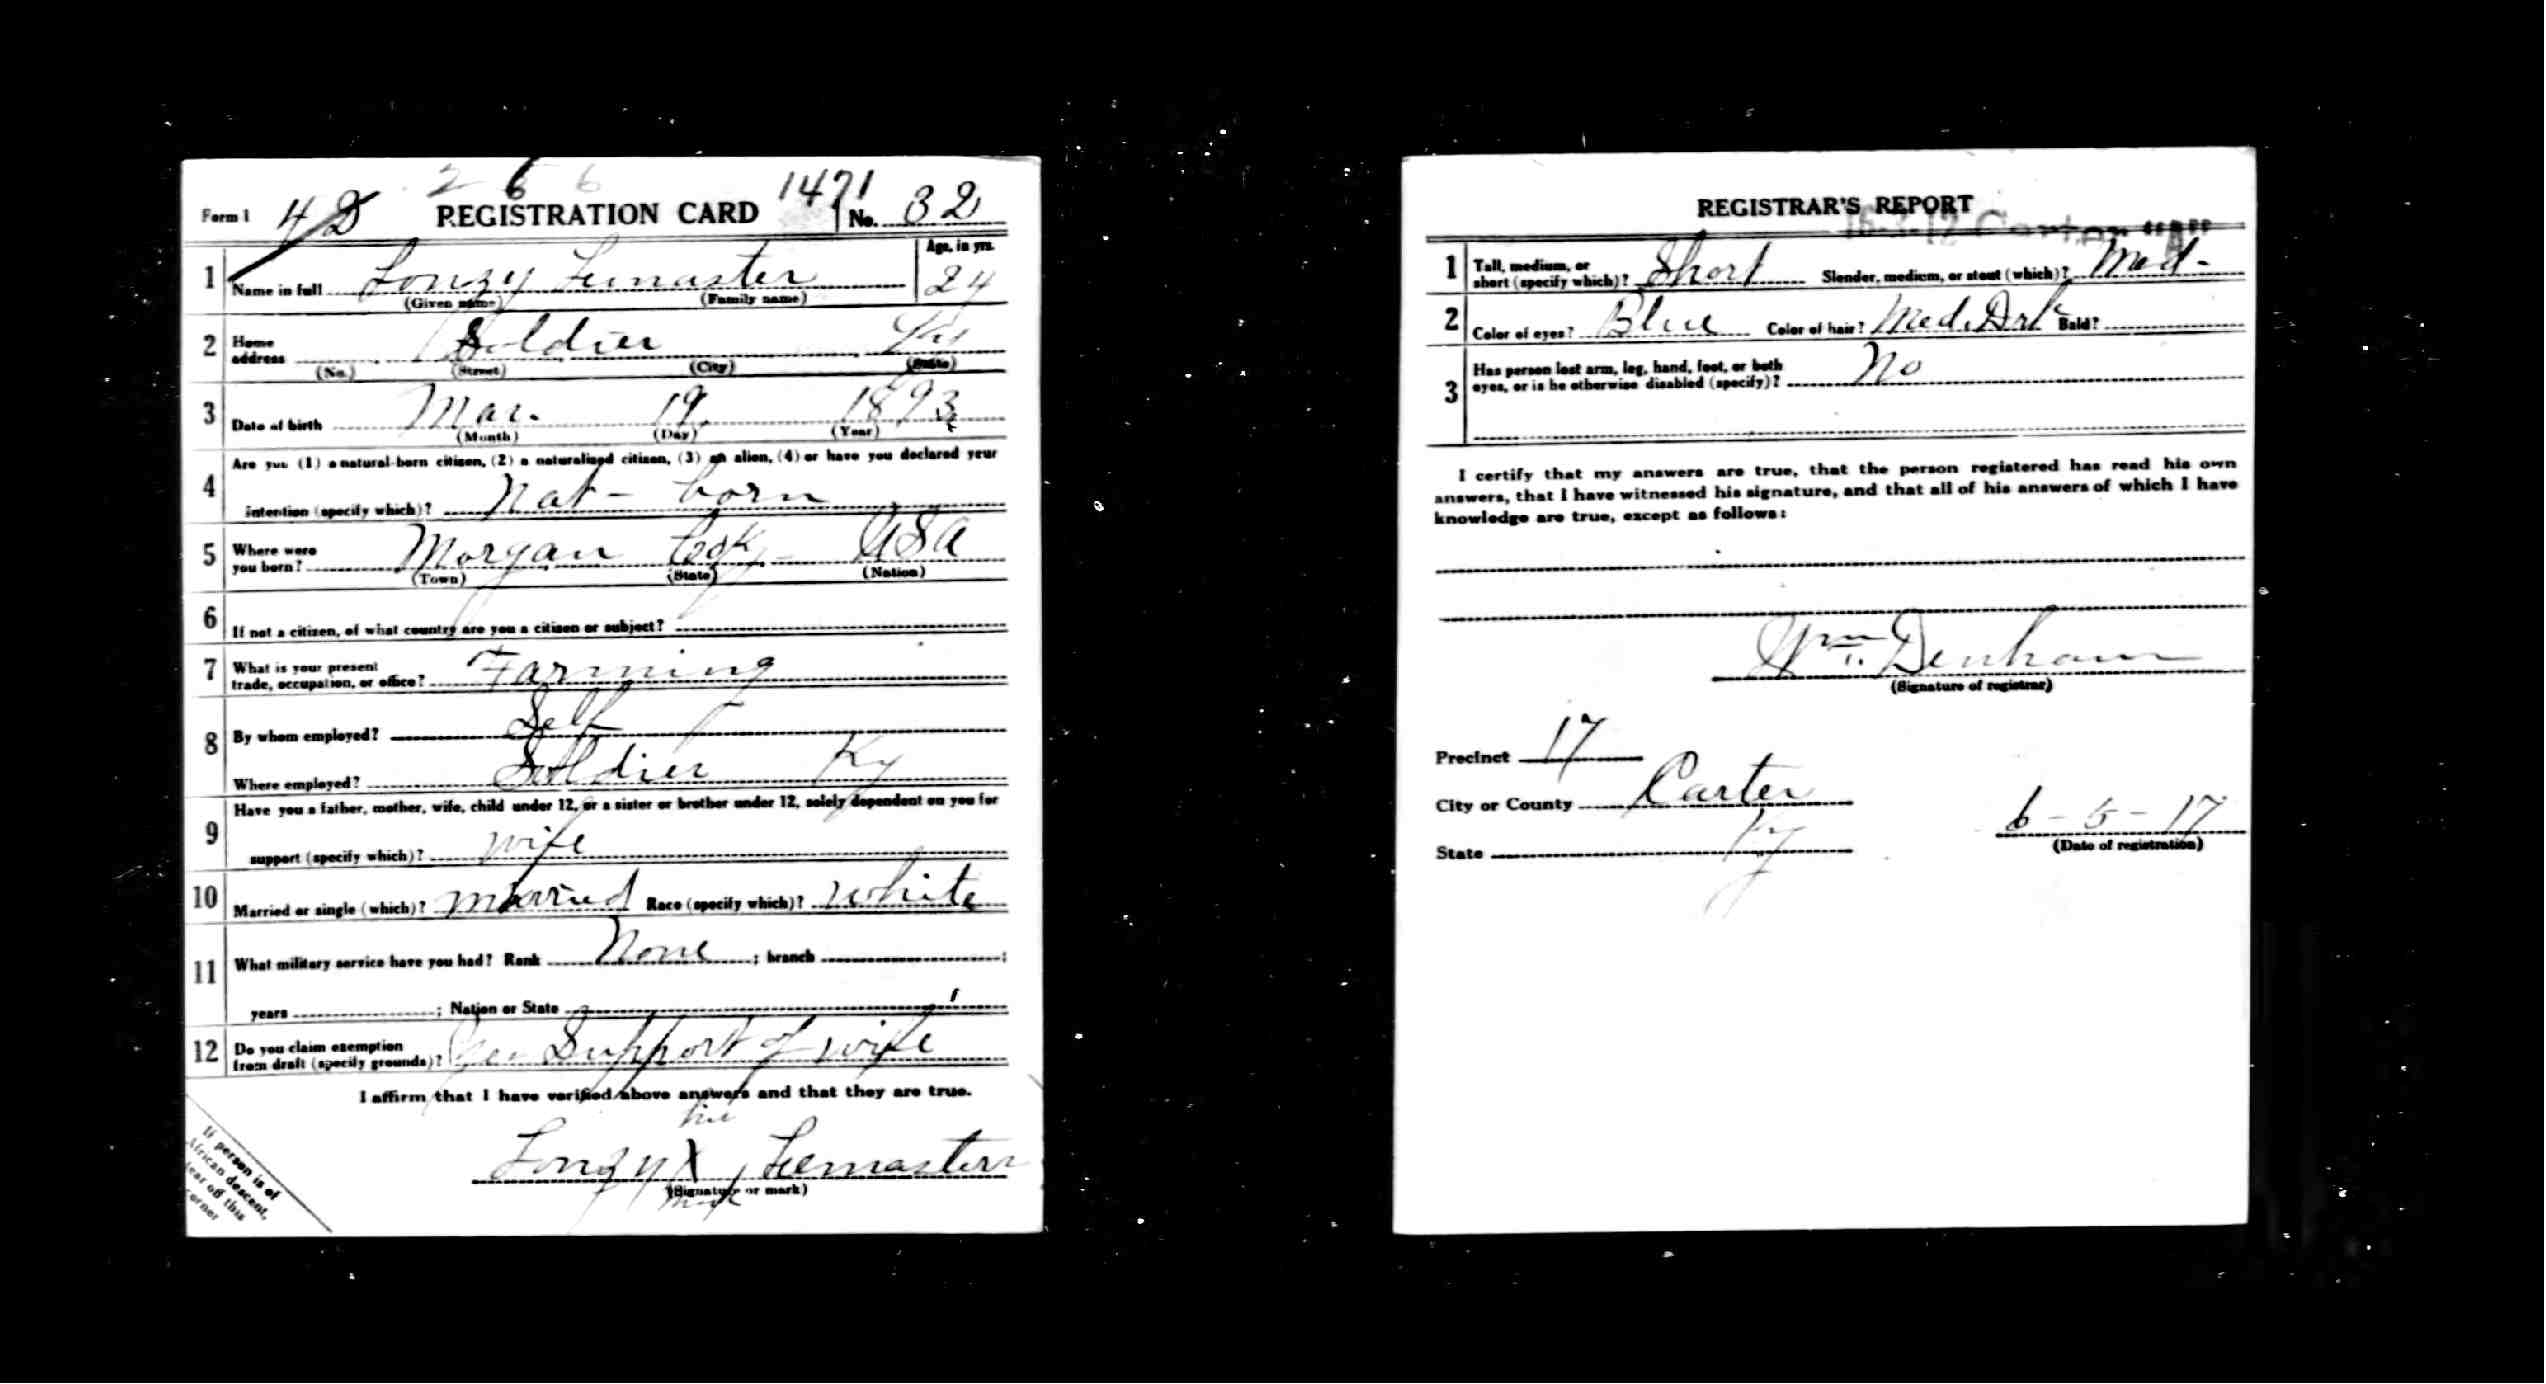 2 6 6
1471
Form 1 42 REGISTRATION CARD No. 32
1 Name in full Lonzy Lemaster Age, in yrs. 24
(Given name) (Family name)
2 Home address Soldier Ky
(No.) (Street) (City) (State)
3 Date of birth Mar. 19 1893
(Month) (Day) (Year)
4 Are you (1) a natural-born citizen, (2) a naturalized citizen, (3) an alien, (4) or have you declared your
intention (specify which)? Nat- born
5 Where were you born? Morgan Co Ky - USA
(Town) (State) (Nation)
6 If not a citizen, of what country are you a citizen or subject?
7 What is your present trade, occupation, or office? Farming
8 By whom employed? Self
Where employed? Soldier Ky
9 Have you a father, mother, wife, child under 12, or a sister or brother under 12, solely dependent on you for
support (specify which)? wife
10 Married or single (which)? married Race (specify which)? white
11 What military service have you had? Rank None ; branch ;
years ; Nation or State
12 Do you claim exemption from draft (specify grounds)? Yes Support of wife
I affirm that I have verified above answers and that they are true.
his
Lonzy X Leemasters
(Signature or mark)
mark
If person is of
African descent,
tear off this
corner
REGISTRAR'S REPORT
1 Tall, medium, or short (specify which)? Short Slender, medium, or stout (which)? Med-
2 Color of eyes? Blue Color of hair? Med. Drk Bald?
3 Has person lost arm, leg, hand, foot, or both
eyes, or is he otherwise disabled (specify)? No
I certify that my answers are true, that the person registered has read his own
answers, that I have witnessed his signature, and that all of his answers of which I have
knowledge are true, except as follows:
Wm. T. Denham
(Signature of registrar)
Precinct 17
City or County Carter
State Ky
6-5-17
(Date of registration)